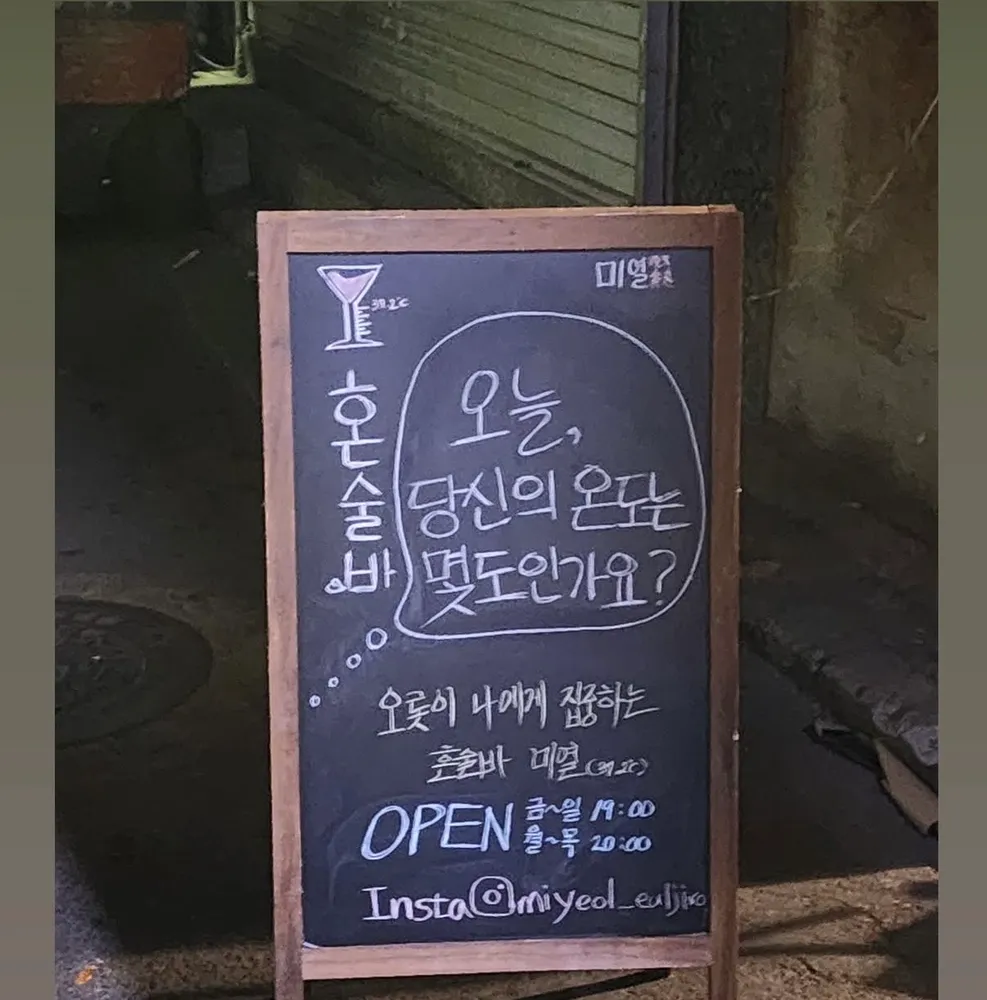 미열
혼술바
오늘,
당신의 온도는
몇도인가요?
오롯이 나에게 집중하는
혼술바 미열
OPEN 금~일 19:00
월~목 20:00
Insta miyeol_euljiro